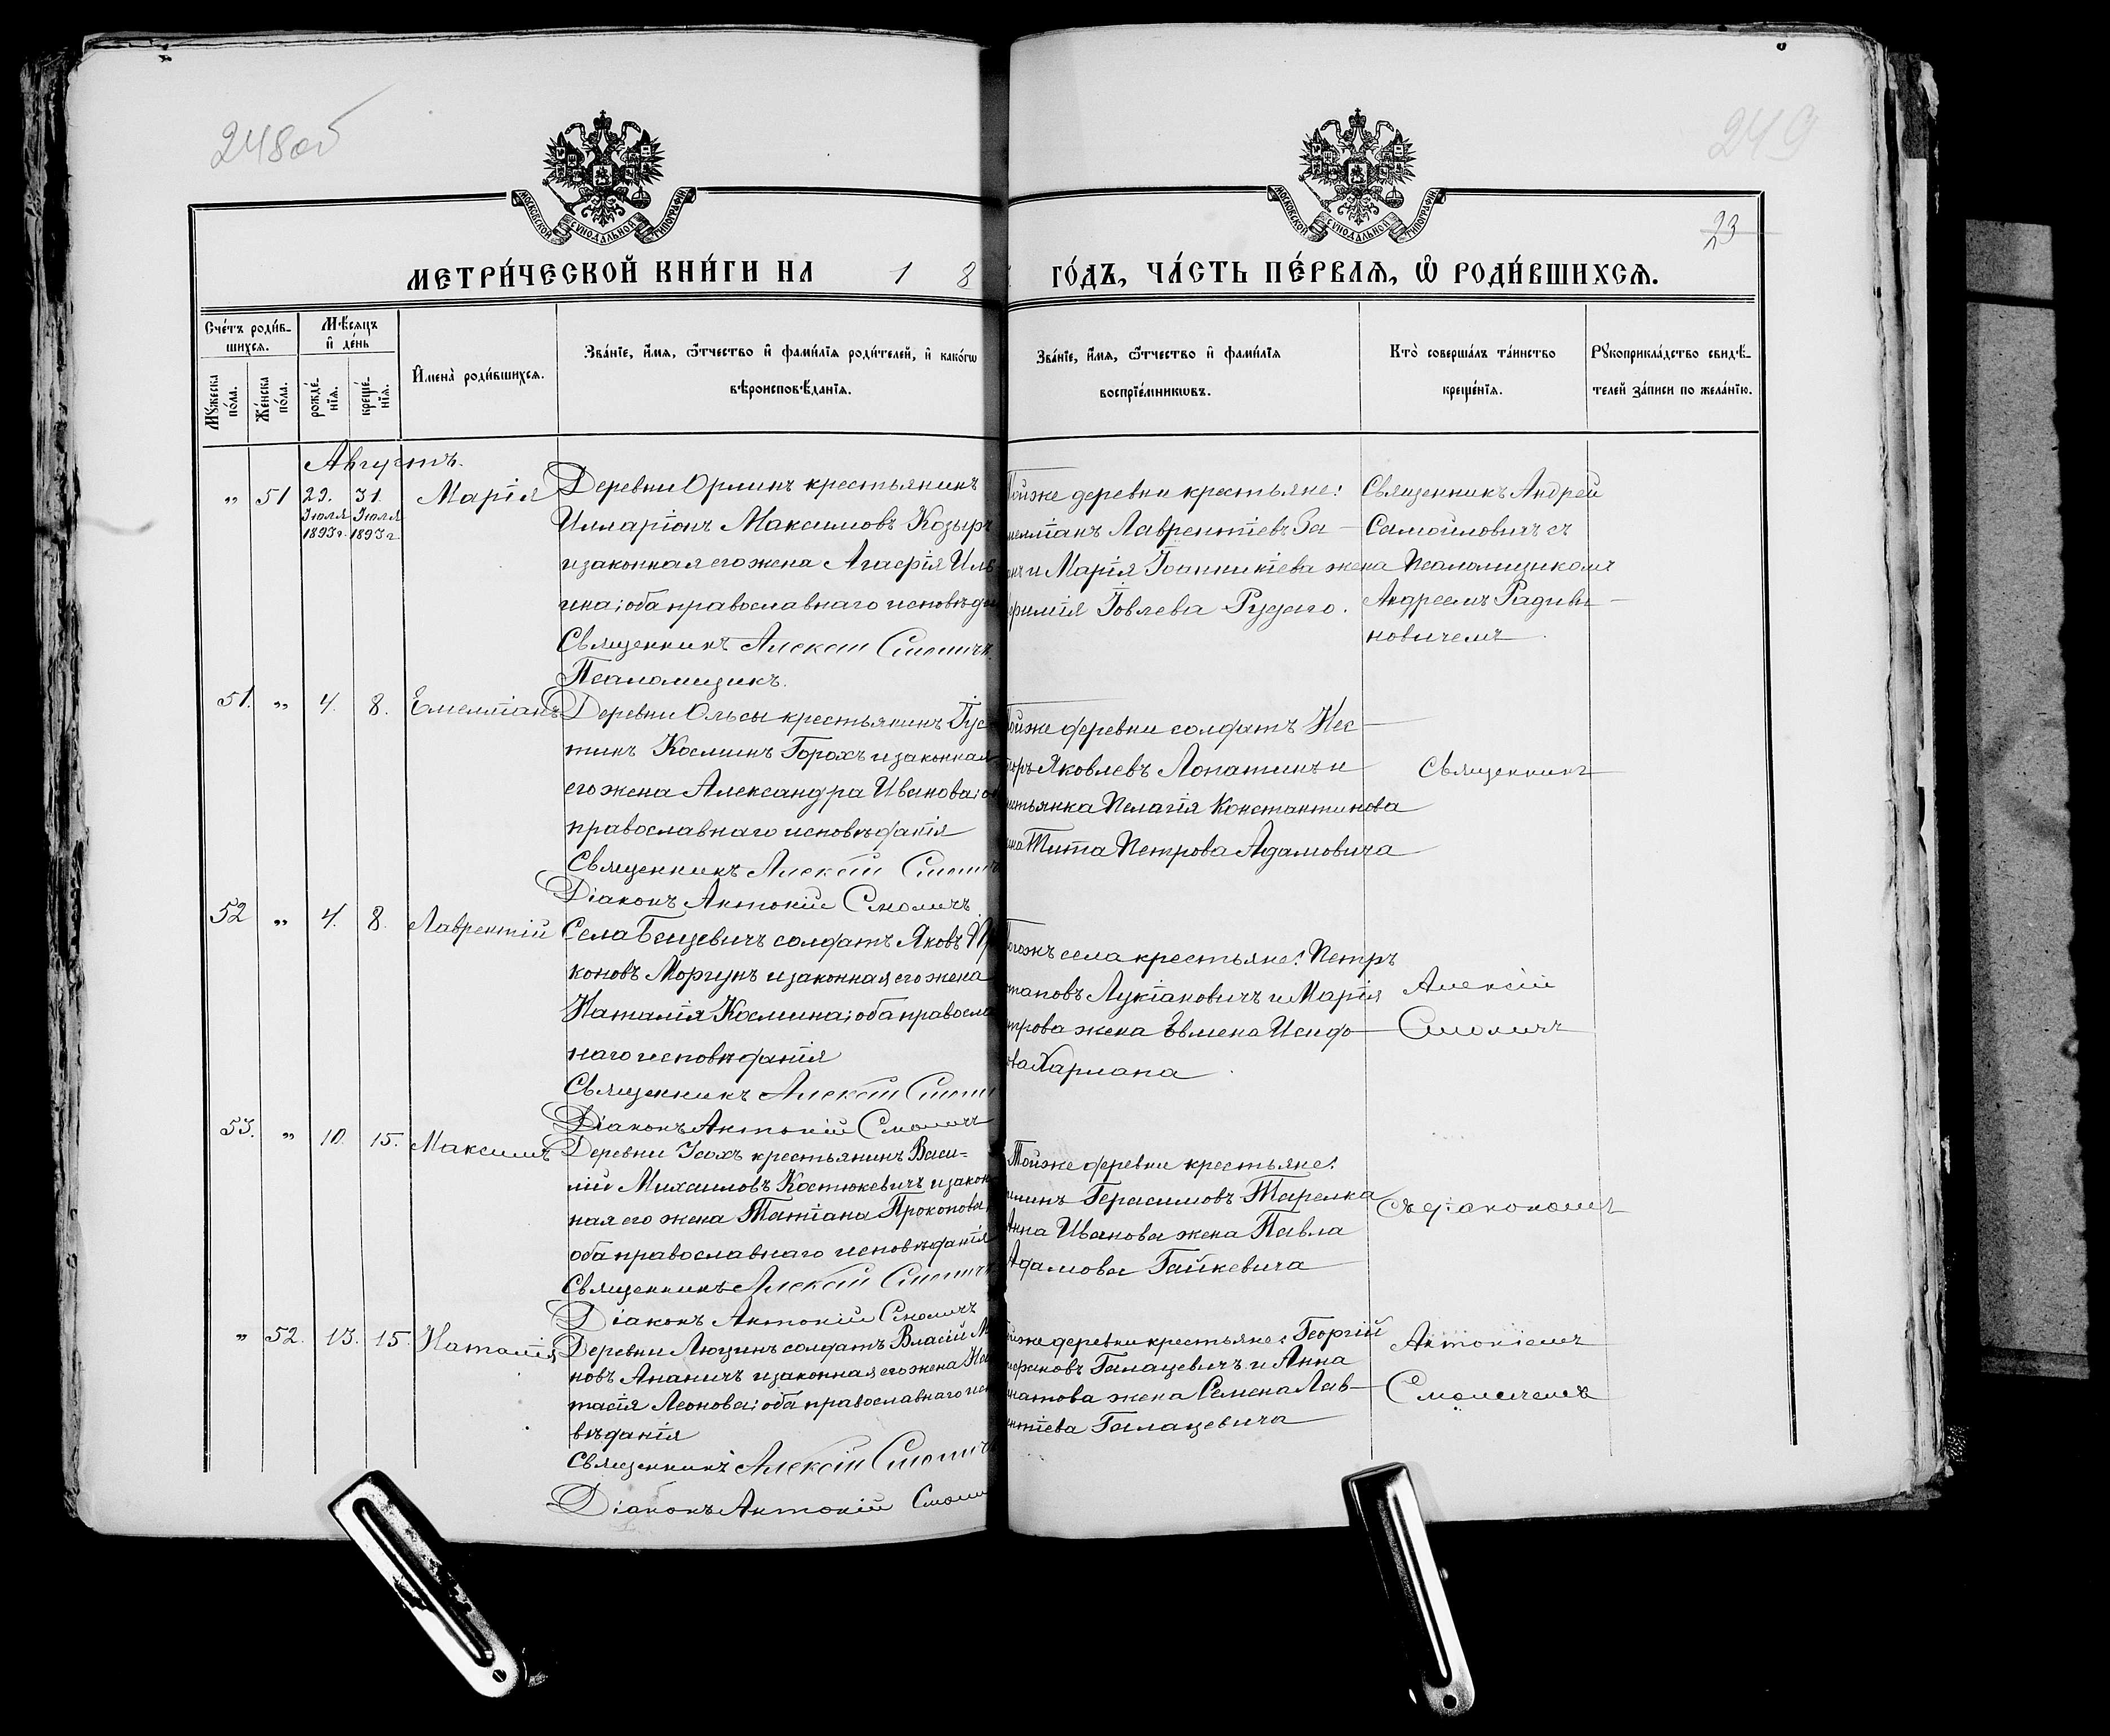 248об
249
23
МОСКОВСКОЙ СѴНОДАЛЬНОЙ ТИПОГРАФІИ
МОСКОВСКОЙ СѴНОДАЛЬНОЙ ТИПОГРАФІИ
МЕТРИ́ЧЕСКОЙ КНИ́ГИ НА 1 8
ГО́ДЪ, ЧА́СТЬ ПЕ́РВАѦ, Ѡ҆ РОДИ́ВШИХСѦ.
Сче́тъ роди́в-
шихсѧ.
Мꙋжеска по́ла.
Же́нска по́ла.
Мѣ́сѧцъ
и҆ де́нь
рожде́-
нїѧ.
креще́-
нїѧ.
И҆мена̀ роди́вшихсѧ.
Зва́нїе, и҆́мѧ, ѻ҆́тчество и҆ фами́лїѧ роди́телей, и҆ како́гѡ
вѣроисповѣ́данїѧ.
Зва́нїе, и҆́мѧ, ѻ҆́тчество и҆ фами́лїѧ
воспрїе́мникѡвъ.
Кто̀ соверша́лъ та́инство
креще́нїѧ.
Рꙋкоприкла́дство свидѣ́-
телей за́писи по жела́нїю.
Августъ.
" 51 29. 31. Марія
Іюля Іюля
1893г. 1893г.
Деревни Орлинъ крестьянинъ
Илларіонъ Максимовъ Козыръ
и законная его жена Агафія Иль
ина; оба православнаго исповѣда
Священникъ Алексій Смоличъ
Псаломщикъ.
Тойже деревни крестьяне:
Лаврентіевъ За-
и Марія Іоанникіева жена
Іовлева Рудаго.
Священникъ Андрей
Самойловичъ съ
Псаломщикомъ
Андреемъ Радиви-
новичемъ
51. " 4. 8. Емеліанъ
Деревни Ольсы крестьянинъ Іус
тинъ Косминъ Горохъ и законная
его жена Александра Иванова; о
православнаго исповѣданія
Священникъ Алексій Смолич
Діаконъ Антоній Смоличъ
Тойже деревни солдатъ Нес-
Яковлевъ Лопатинъ и
Пелагія Константинова
Тита Петрова Адамовича
Священникъ
52 " 4. 8. Лаврентій
Села Бацевичъ солдатъ Яковъ Пр
коновъ Моргунъ и законная его жена
Наталія Космина; оба правосла
наго исповѣданія
Священникъ Алексій Смоли
Діаконъ Антоній Смоличъ
тогожъ села крестьяне: Петръ
Лукіановичъ и Марія
жена Евмена Исидо-
Харлана
Алексій
Смоличъ
53. " 10. 15. Максимъ
Деревни Усохъ крестьянинъ Васи=
лій Михаиловъ Костюкевичъ и закон
ная его жена Татіана Прокопова
оба православнаго исповѣданія
Священникъ Алексій Смоличъ
Діаконъ Антоній Смоличъ
Тойже деревни крестьяне:
Герасимовъ Тарелка
Анна Иванова жена Павла
Адамова Гайкевича
Съ діакономъ
" 52. 13. 15. Наталія
Деревни Люзинъ солдатъ Власій
новъ Ананичъ и законная его жена
тасія Леонова; оба православнаго испо
вѣданія
Священникъ Алексій Смолич
Діаконъ Антоній Смоли
тойже деревни крестьяне: Георгій
Галацевичъ и Анна
жена Семена Лав-
рентіева Галацевича
Антоніемъ
Смоличемъ